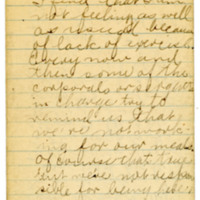 I find that I am
not feeling as well
as usual because
of lack of exercise.
Every now and
then some of the
corporals or
in charge try to
remind us that
we're not work-
ing for our meals
of course that true
but we're not respon
sible for being here